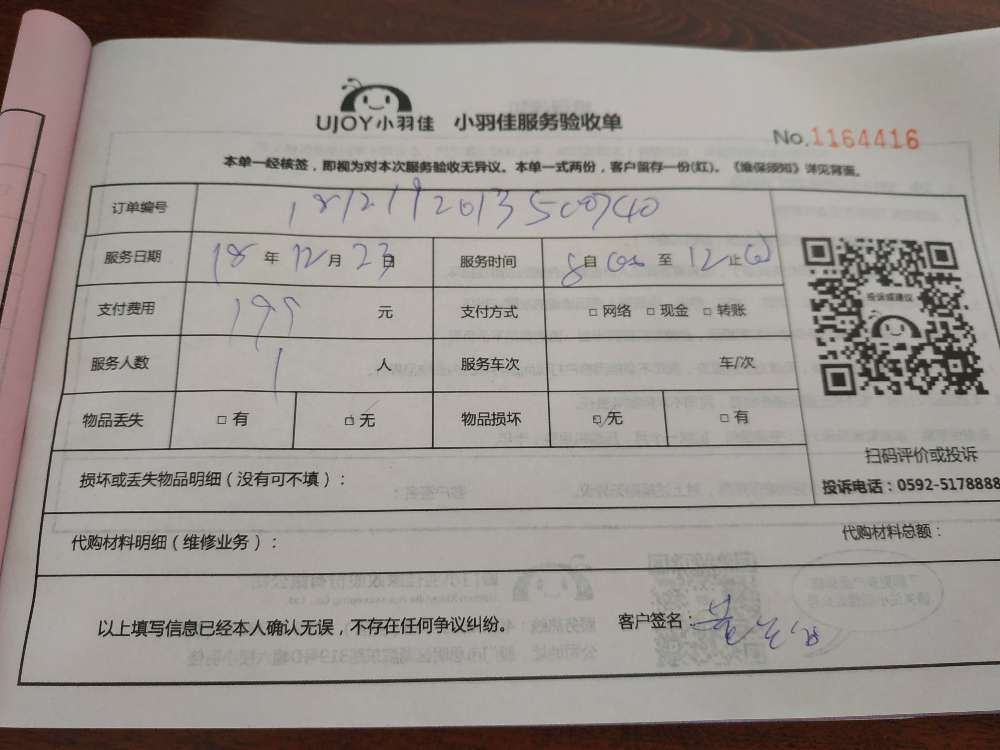 UJOY小羽佳 小羽佳服务验收单
No.1164416
本单一经核签，即视为对本次服务验收无异议。本单一式两份，客户留存一份(红)。《维保须知》详见背面。
订单编号
服务日期 18 年 12 月 23 日 服务时间 8 自 00 至 12 止
支付费用 199 元 支付方式 □ 网络 □ 现金 □ 转账
服务人数 1 人 服务车次 车/次
物品丢失 □ 有 □ 无 物品损坏 □ 无 □ 有
投诉或建议
扫码评价或投诉
投诉电话：0592-5178888
损坏或丢失物品明细（没有可不填）：
代购材料明细（维修业务）： 代购材料总额：
以上填写信息已经本人确认无误，不存在任何争议纠纷。 客户签名：